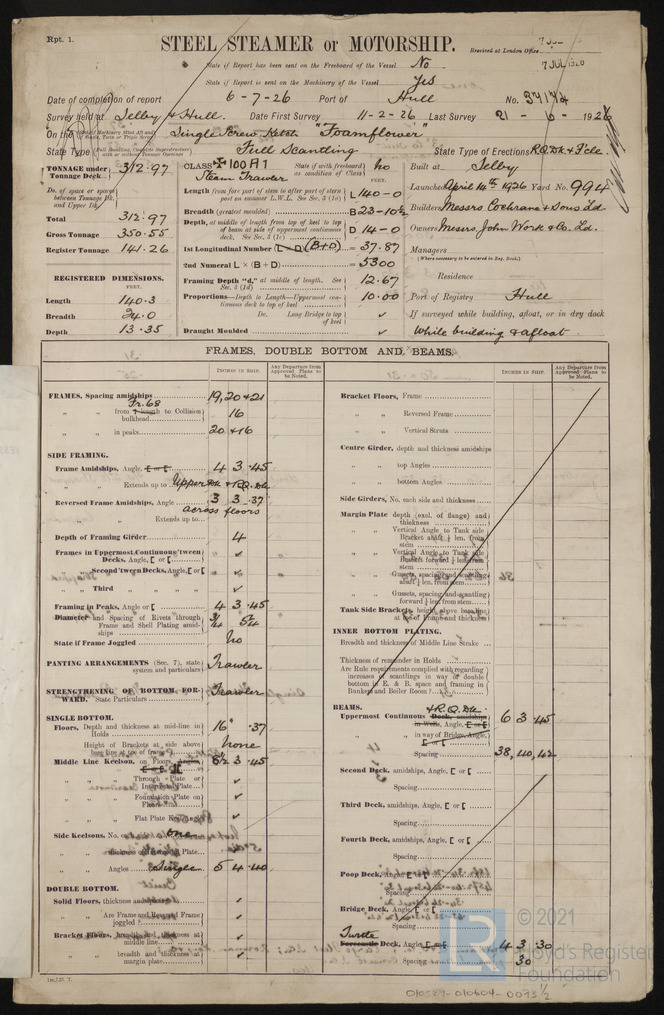 Rpt. 1.
STEEL STEAMER or MOTORSHIP.
Received at London Office
7 JUL 1926
State if Report has been sent on the Freeboard of the Vessel No
State if Report is sent on the Machinery of the Vessel Yes
Date of completion of report 6-7-26 Port of Hull No. 37174
Survey held at Selby & Hull. Date First Survey 11-2-26 Last Survey 21-6-1926
On the Single Screw Ketch "Foamflower"
State Type Full Scantling State Type of Erections R.Q.Dk & F'cle
TONNAGE under Tonnage Deck 312.97
Do. of space or spaces between Tonnage Dk. and Upper Dk.
Total 312.97
Gross Tonnage 350.55
Register Tonnage 141.26
REGISTERED DIMENSIONS.
FEET.
Length 140.3
Breadth 24.0
Depth 13.35
CLASS ✠100A1 State if with freeboard as condition of Class No
Steam Trawler
FEET.
Length from fore part of stem to after part of stern post on summer L.W.L. See Sec. 3 (1c) L 140-0
Breadth (greatest moulded) B 23-10½
Depth, at middle of length from top of keel to top of beam at side of uppermost continuous deck. See Sec. 3 (1c) D 14-0
1st Longitudinal Number (B+D) = 37.87
2nd Numeral L × (B + D) = 5300
Framing Depth "d," at middle of length. See Sec. 3 (1d) 12.67
Proportions—Depth to Length—Uppermost continuous deck to top of keel 10.00
Do. Long Bridge to top of keel
Draught Moulded ✓
Built at Selby
Launched April 14th 1926 Yard No. 994
Builders Messrs Cochrane & Sons Ld.
Owners Messrs. John Work & Co. Ld.
Managers
(Where necessary to be entered in Reg. Book.)
Residence
Port of Registry Hull
If surveyed while building, afloat, or in dry dock
While building & afloat.
FRAMES, DOUBLE BOTTOM AND BEAMS.
INCHES IN SHIP.
Any Departure from Approved Plans to be Noted.
FRAMES, Spacing amidships 19, 20 & 21
" " from Fr. 68 to Collision bulkhead 16
" " in peaks 20 & 16
SIDE FRAMING.
Frame Amidships, Angle, [ or [ 4 3 .45
" " Extends up to Upper Dk & R.Q. Dk
Reversed Frame Amidships, Angle 3 3 .37
" " Extends up to across floors
Depth of Framing Girder 4
Frames in Uppermost Continuous 'tween Decks, Angle, [ or [ ✓
" Second 'tween Decks, Angle, [ or [ ✓
" Third " " " ✓
Framing in Peaks, Angle or [ 4 3 .45
Diameter and Spacing of Rivets through Frame and Shell Plating amidships ¾ 5¼
State if Frame Joggled No
PANTING ARRANGEMENTS (Sec. 7), state system and particulars Trawler
STRENGTHENING OF BOTTOM FORWARD. State Particulars Trawler
SINGLE BOTTOM.
Floors, Depth and thickness at mid-line in Holds 16" .37
" Height of Brackets at side above base line at toe of frame none
Middle Line Keelson, on Floors, Angles, [ or [ 6½ 3 .45
" " Through Plate or Intercostal Plate ✓
" " Foundation Plate on Floors ✓
" " Flat Plate Keelson ✓
Side Keelsons, No. each side one
" " thickness of Intercostal Plate ✓
" " Angles Single 5 4 .40
DOUBLE BOTTOM.
Solid Floors, thickness and spacing ✓
" " Are Frame and Reversed Frame joggled? ✓
Bracket Floors, breadth and thickness at middle line ✓
" " breadth and thickness at margin plate ✓
INCHES IN SHIP.
Any Departure from Approved Plans to be Noted.
Bracket Floors, Frame
" " Reversed Frame
" " Vertical Struts
Centre Girder, depth and thickness amidships
" " top Angles
" " bottom Angles
Side Girders, No. each side and thickness
Margin Plate, depth (excl. of flange) and thickness
" " Vertical Angle to Tank side Bracket abaft ¼ len. from stem
" " Vertical Angle to Tank side Bracket forward ¼ len. from stem
" " Gussets, spacing and scantling abaft ¼ len. from stem
" " Gussets, spacing and scantling forward ¼ len. from stem
Tank Side Brackets, height above base line at toe of Frame and thickness
INNER BOTTOM PLATING.
Breadth and thickness of Middle Line Strake
Thickness of remainder in Holds
Are Rule requirements complied with regarding increases of scantlings in way of double bottom in E. & B. space and framing in Bunkers and Boiler Room?
BEAMS.
Uppermost Continuous & R.Q. Dk. 6 3 .45
" " in way of Bridge, Angle, [ or [
Spacing 38, 40, 42
Second Deck, amidships, Angle, [ or [
Spacing
Third Deck, amidships, Angle, [ or [
Spacing
Fourth Deck, amidships, Angle, [ or [
Spacing
Poop Deck, Angle, [ or [
Spacing
Bridge Deck, Angle, [ or [
Spacing
Turtle
Forecastle Deck, Angle, [ or [ 4 3 .30
Spacing 30
© 2021
LR
Lloyd's Register
Foundation
010584-010604-0093 ½